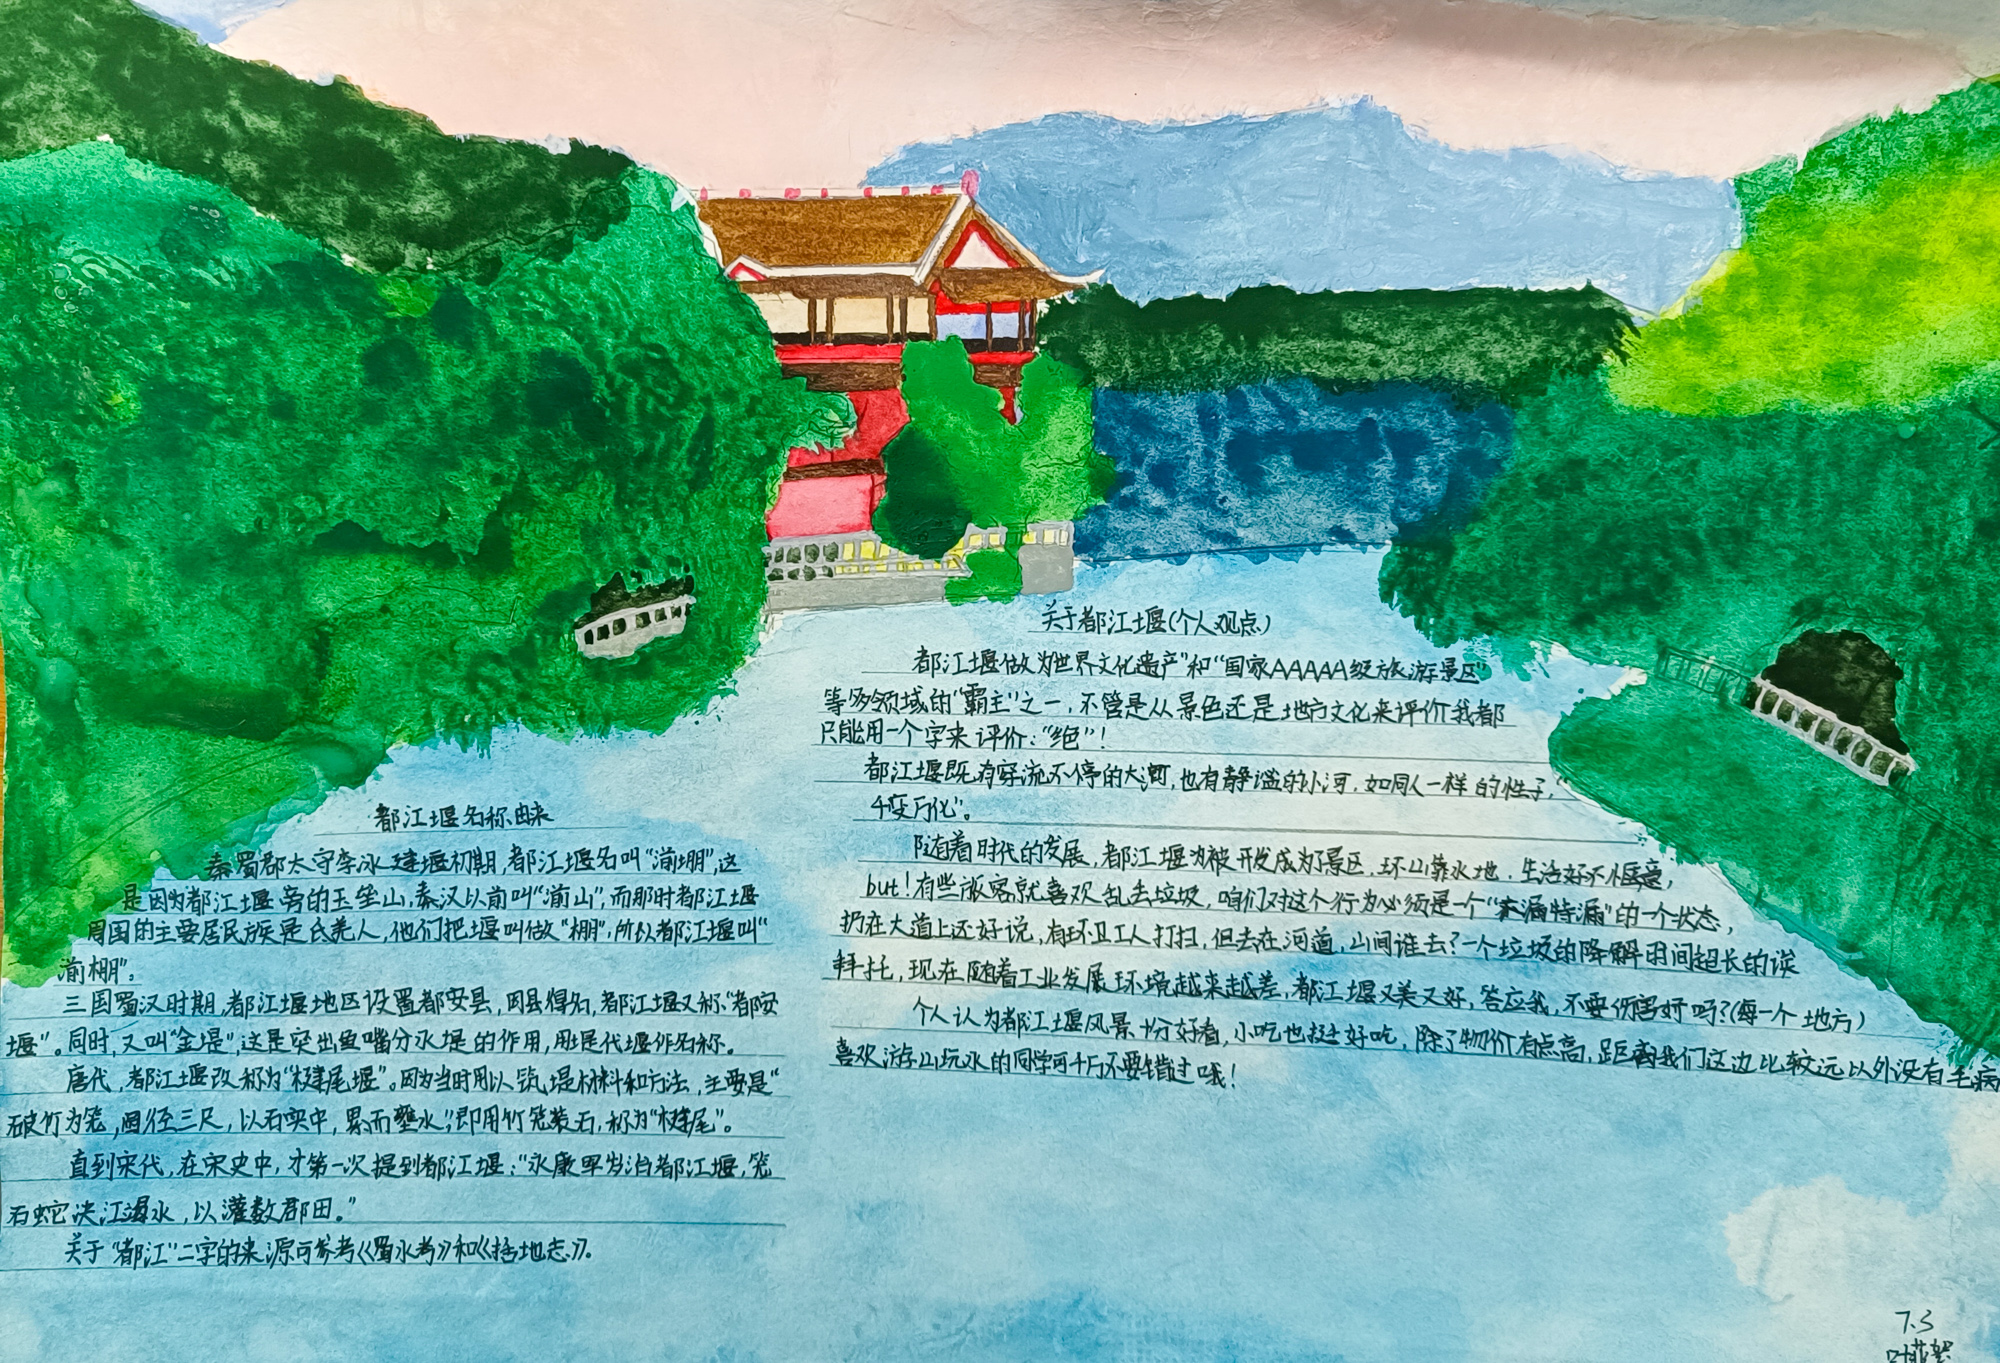 都江堰名称由来
秦蜀郡太守李冰建堰初期，都江堰名叫“湔堋”，这
是因为都江堰旁的玉垒山，秦汉以前叫“湔山”，而那时都江堰
周围的主要居民族是氐羌人，他们把堰叫做“棚”，所以都江堰叫“
湔棚”。
三国蜀汉时期，都江堰地区设置都安县，因县得名，都江堰又称“都安
堰”。同时，又叫“金堤”，这是突出鱼嘴分水堤的作用，用堤代堰作名称。
唐代，都江堰改称为“楗尾堰”。因为当时用以筑堤材料和方法，主要是“
破竹为笼，圆径三尺，以石实中，累而壅水”；即用竹笼装石，称为“楗尾”。
直到宋代，在宋史中，才第一次提到都江堰：“永康军岁治都江堰，笼
石蛇决江遏水，以灌数郡田。”
关于“都江”二字的来源可参考《蜀水考》和《括地志》。
关于都江堰(个人观点)
都江堰做为世界文化遗产”和“国家AAAAA级旅游景区”
等多领域的“霸主”之一，不管是从景色还是地方文化来评价我都
只能用一个字来评价：“绝”！
都江堰既有穿流不停的大河，也有静谧的小河，如同人一样的性子，“
千变万化”。
随着时代的发展，都江堰为被开发成为了景区，环山靠水地，生活好不惬意，
but！有些旅客就喜欢乱丢垃圾，咱们对这个行为必须是一个“特漏”的一个状态，
扔在大道上还好说，有环卫工人打扫，但丢在河道，山间谁去？一个垃圾的降解时间超长的诶
拜托，现在随着工业发展环境越来越差，都江堰又美又好，答应我，不要伤害好吗？(每一个地方)
个人认为都江堰风景十分好看，小吃也挺好吃，除了物价有点高，距离我们这边比较远以外没有毛病
喜欢游山玩水的同学可千万不要错过哦！
7.3
叶